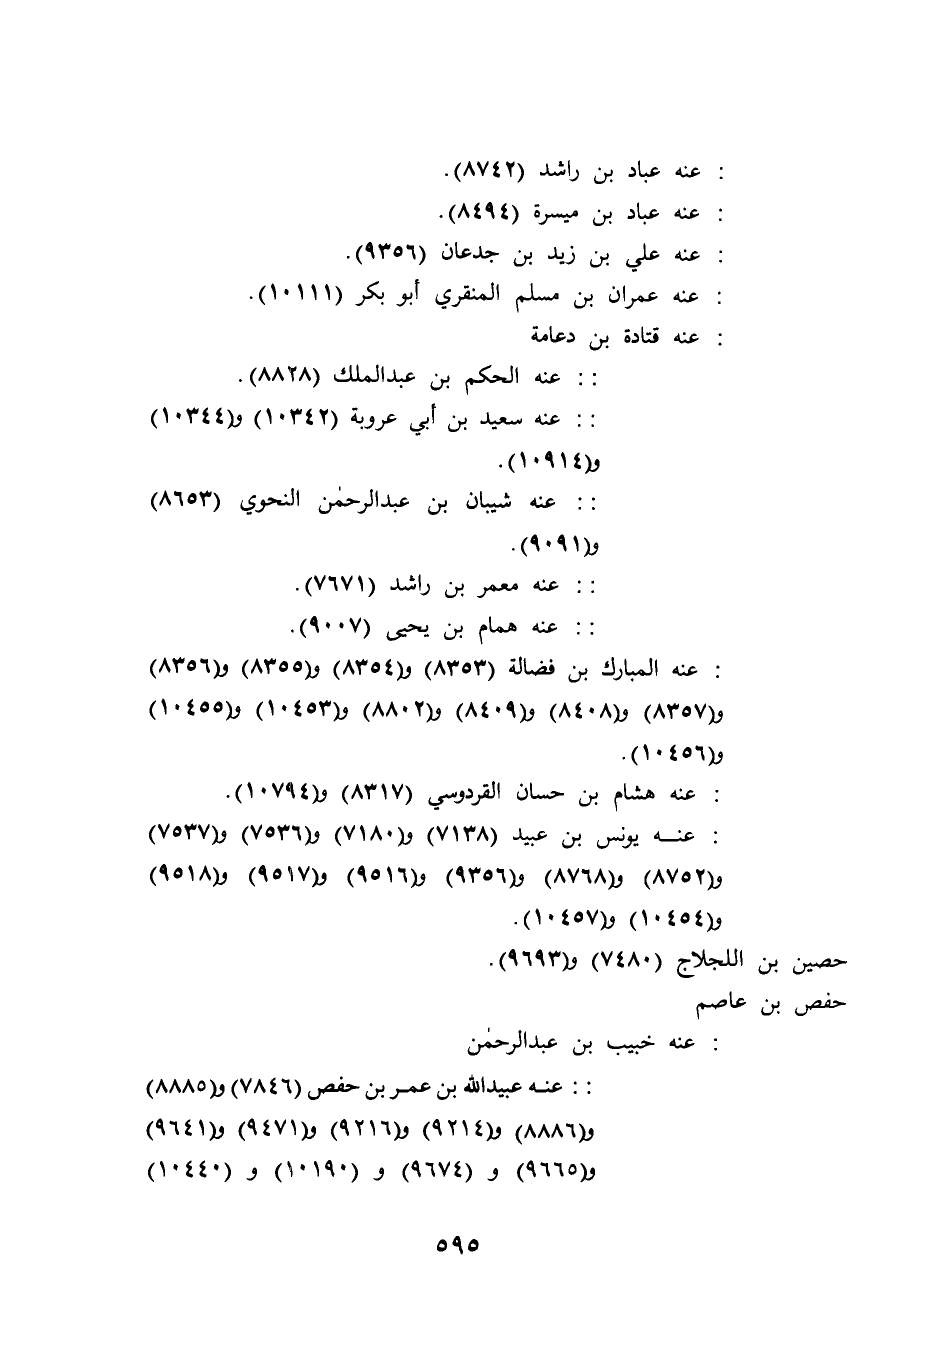 : عنه عباد بن راشد (٨٧٤٢).
: عنه عباد بن ميسرة (٨٤٩٤).
: عنه علي بن زيد بن جدعان (٩٣٥٦).
: عنه عمران بن مسلم المنقري أبو بكر (١٠١١١).
: عنه قتادة بن دعامة
:: عنه الحكم بن عبدالملك (٨٨٢٨).
:: عنه سعيد بن أبي عروبة (١٠٣٤٢) و(١٠٣٤٤)
و(١٠٩١٤).
:: عنه شيبان بن عبدالرحمٰن النحوي (٨٦٥٣)
و(٩٠٩١).
:: عنه معمر بن راشد (٧٦٧١).
:: عنه همام بن يحيى (٩٠٠٧).
: عنه المبارك بن فضالة (٨٣٥٣) و(٨٣٥٤) و(٨٣٥٥) و(٨٣٥٦)
و(٨٣٥٧) و(٨٤٠٨) و(٨٤٠٩) و(٨٨٠٢) و(١٠٤٥٣) و(١٠٤٥٥)
و(١٠٤٥٦).
: عنه هشام بن حسان القردوسي (٨٣١٧) و(١٠٧٩٤).
: عنـــه يونس بن عبيد (٧١٣٨) و(٧١٨٠) و(٧٥٣٦) و(٧٥٣٧)
و(٨٧٥٢) و(٨٧٦٨) و(٩٣٥٦) و(٩٥١٦) و(٩٥١٧) و(٩٥١٨)
و(١٠٤٥٤) و(١٠٤٥٧).
حصين بن اللجلاج (٧٤٨٠) و(٩٦٩٣).
حفص بن عاصم
: عنه خبيب بن عبدالرحمٰن
:: عنـه عبيدالله بن عمـر بن حفص (٧٨٤٦) و(٨٨٨٥)
و(٨٨٨٦) و(٩٢١٤) و(٩٢١٦) و(٩٤٧١) و(٩٦٤١)
و(٩٦٦٥) و (٩٦٧٤) و (١٠١٩٠) و (١٠٤٤٠)
٥٩٥